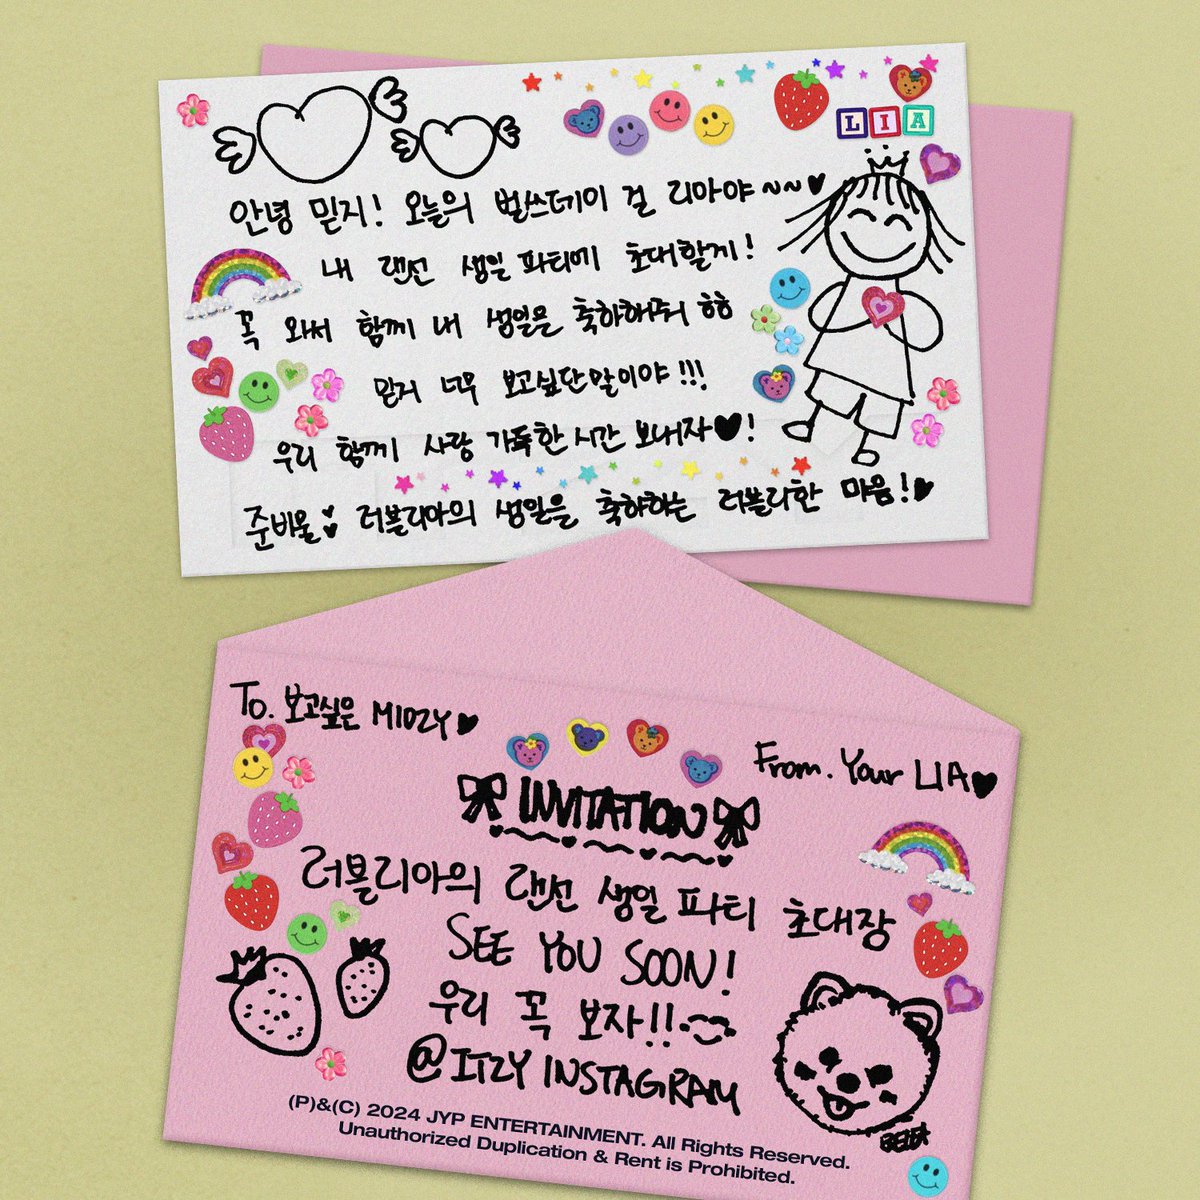 LIA
안녕 믿지! 오늘의 벌쓰데이 걸 리아야~~♥
내 랜선 생일파티에 초대할게!
꼭 와서 함께 내 생일을 축하해줘 ㅎㅎ
믿지 너무 보고싶단말이야!!!
우리 함께 사랑 가득한 시간 보내자♥!
준비물: 러블리아의 생일을 축하하는 러블리한 마음!♥
To. 보고싶은 MIDZY♥
From. Your LIA♥
INVITATION
러블리아의 랜선 생일 파티 초대장
SEE YOU SOON!
우리 꼭 보자!!
@ITZY INSTAGRAM
BELLA
(P)&(C) 2024 JYP ENTERTAINMENT. All Rights Reserved.
Unauthorized Duplication & Rent is Prohibited.